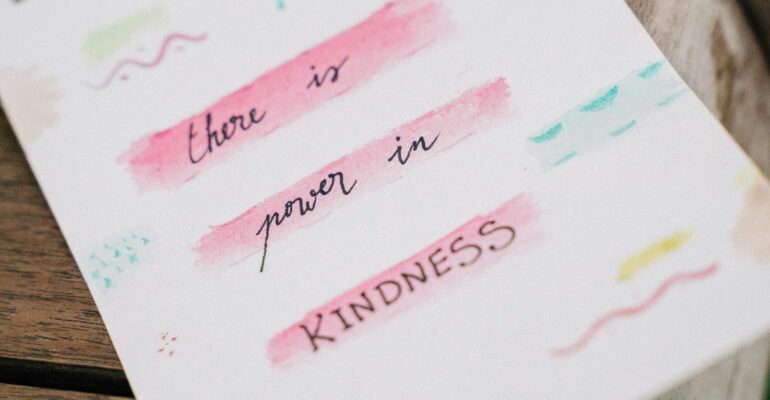 there is
power in
KINDNESS